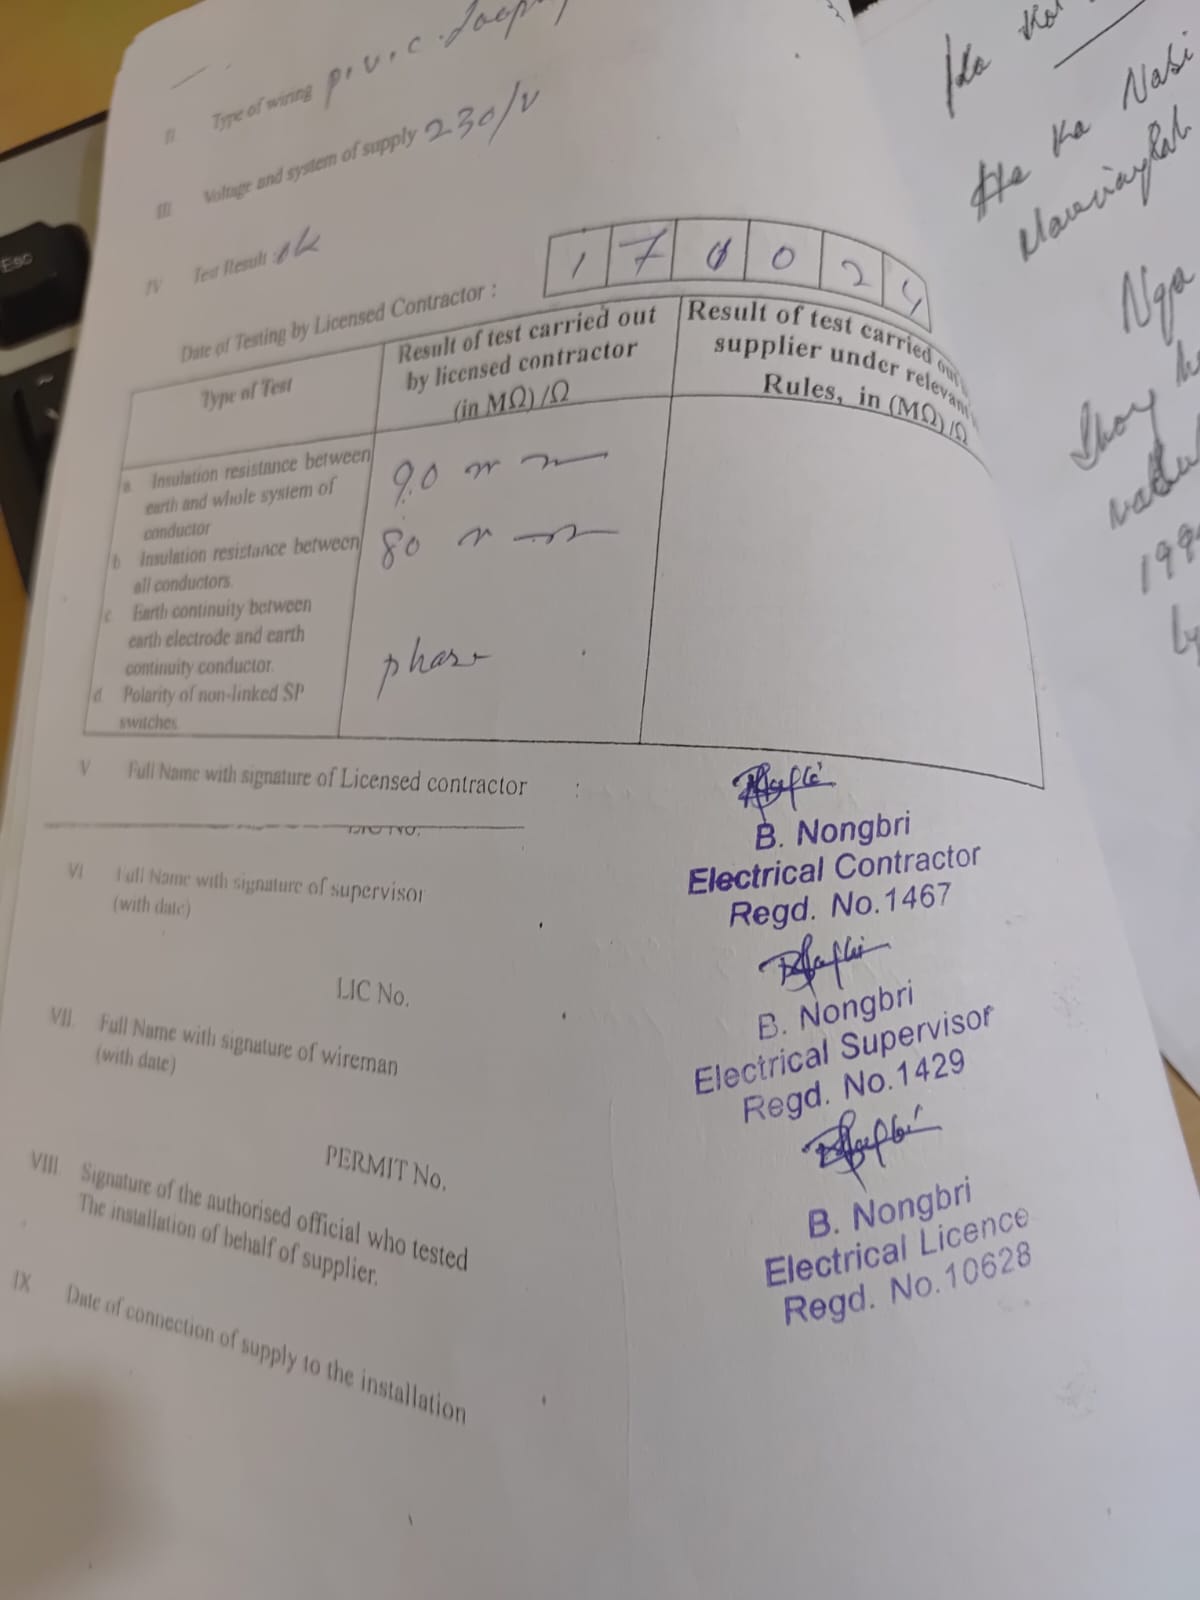 II Type of wiring p.v.c.
III Voltage and system of supply 230/v
IV Test Result : ok
Date of Testing by Licensed Contractor : 1 7 0 2 4
Type of Test
Result of test carried out
by licensed contractor
(in MΩ) /Ω
Result of test carried out
supplier under relevant
Rules, in (MΩ) /Ω
a. Insulation resistance between
earth and whole system of
conductor
90
b Insulation resistance between
all conductors.
80
c Earth continuity between
earth electrode and earth
continuity conductor.
phase
d Polarity of non-linked SP
switches
V Full Name with signature of Licensed contractor :
LIC NO.
B. Nongbri
Electrical Contractor
Regd. No.1467
VI Full Name with signature of supervisor
(with date)
LIC No.
B. Nongbri
Electrical Supervisor
Regd. No.1429
VII. Full Name with signature of wireman
(with date)
PERMIT No.
B. Nongbri
Electrical Licence
Regd. No.10628
VIII. Signature of the authorised official who tested
The installation of behalf of supplier.
IX Date of connection of supply to the installation
Esc
Ha Ka Nasi
Nga